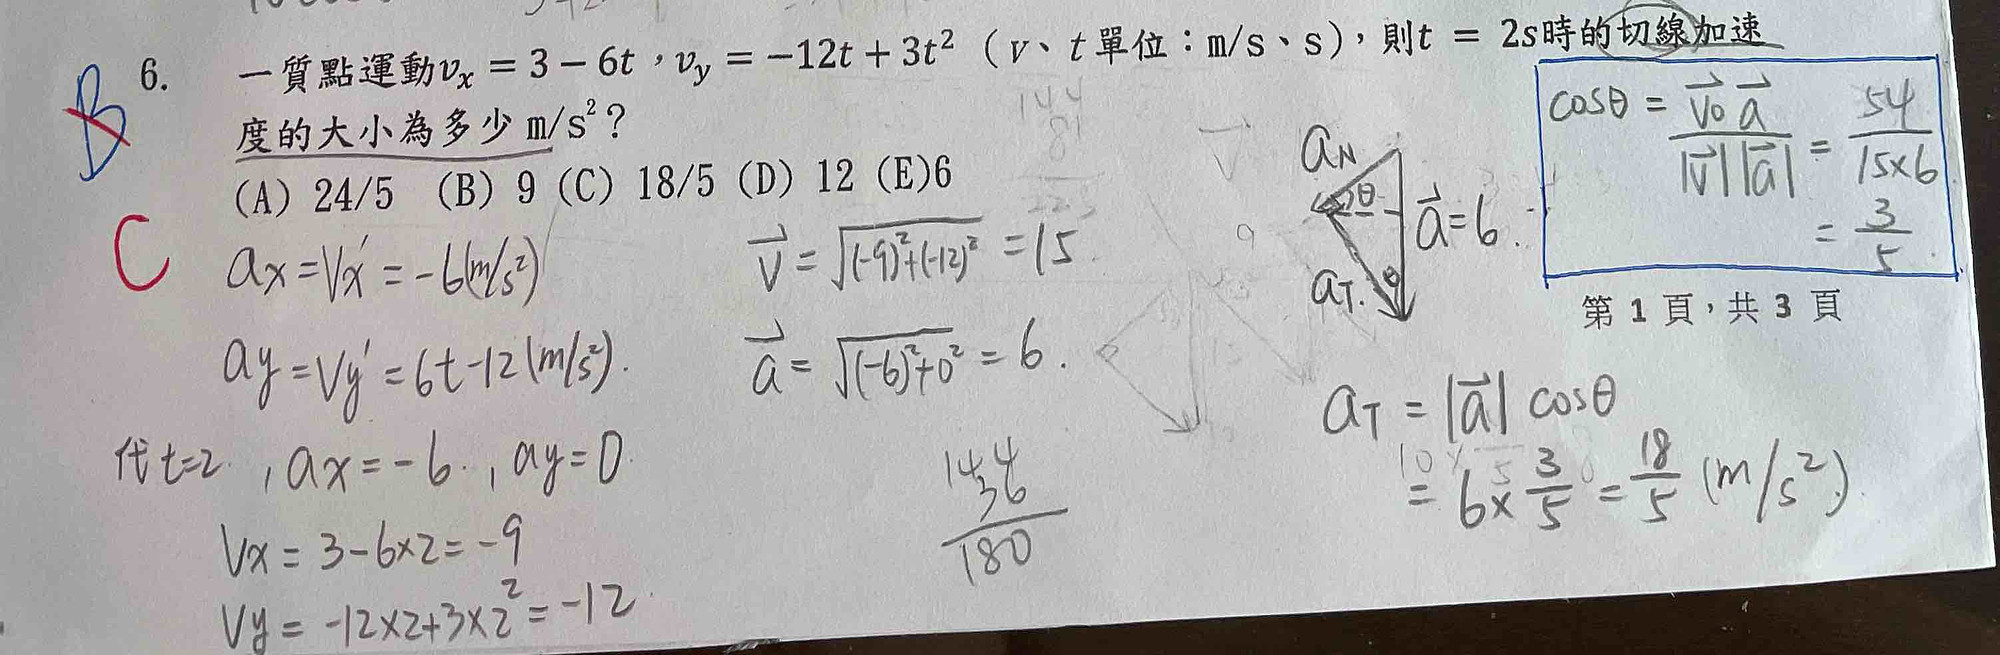 6. 一質點運動vₓ = 3 − 6t，v_y = −12t + 3t²（v、t單位：m/s、s），則t = 2s時的切線加速
度的大小為多少 m/s²？
(A) 24/5 (B) 9 (C) 18/5 (D) 12 (E)6
B
C
ax = Vx' = -6(m/s²)
ay = Vy' = 6t-12(m/s²).
代t=2. , ax = -6. , ay = 0.
Vx = 3-6×2 = -9
Vy = -12×2+3×2² = -12.
V⃗ = √((-9)²+(-12)²) = 15.
a⃗ = √((-6)²+0²) = 6.
144
36
180
144
81
V⃗
9
aN
θ
a⃗=6.
aT.
θ
cosθ = V⃗∘a⃗ / |V⃗||a⃗| = 54 / 15×6
= 3/5.
第 1 頁，共 3 頁
aT = |a⃗| cosθ
= 6×3/5 = 18/5 (m/s²).